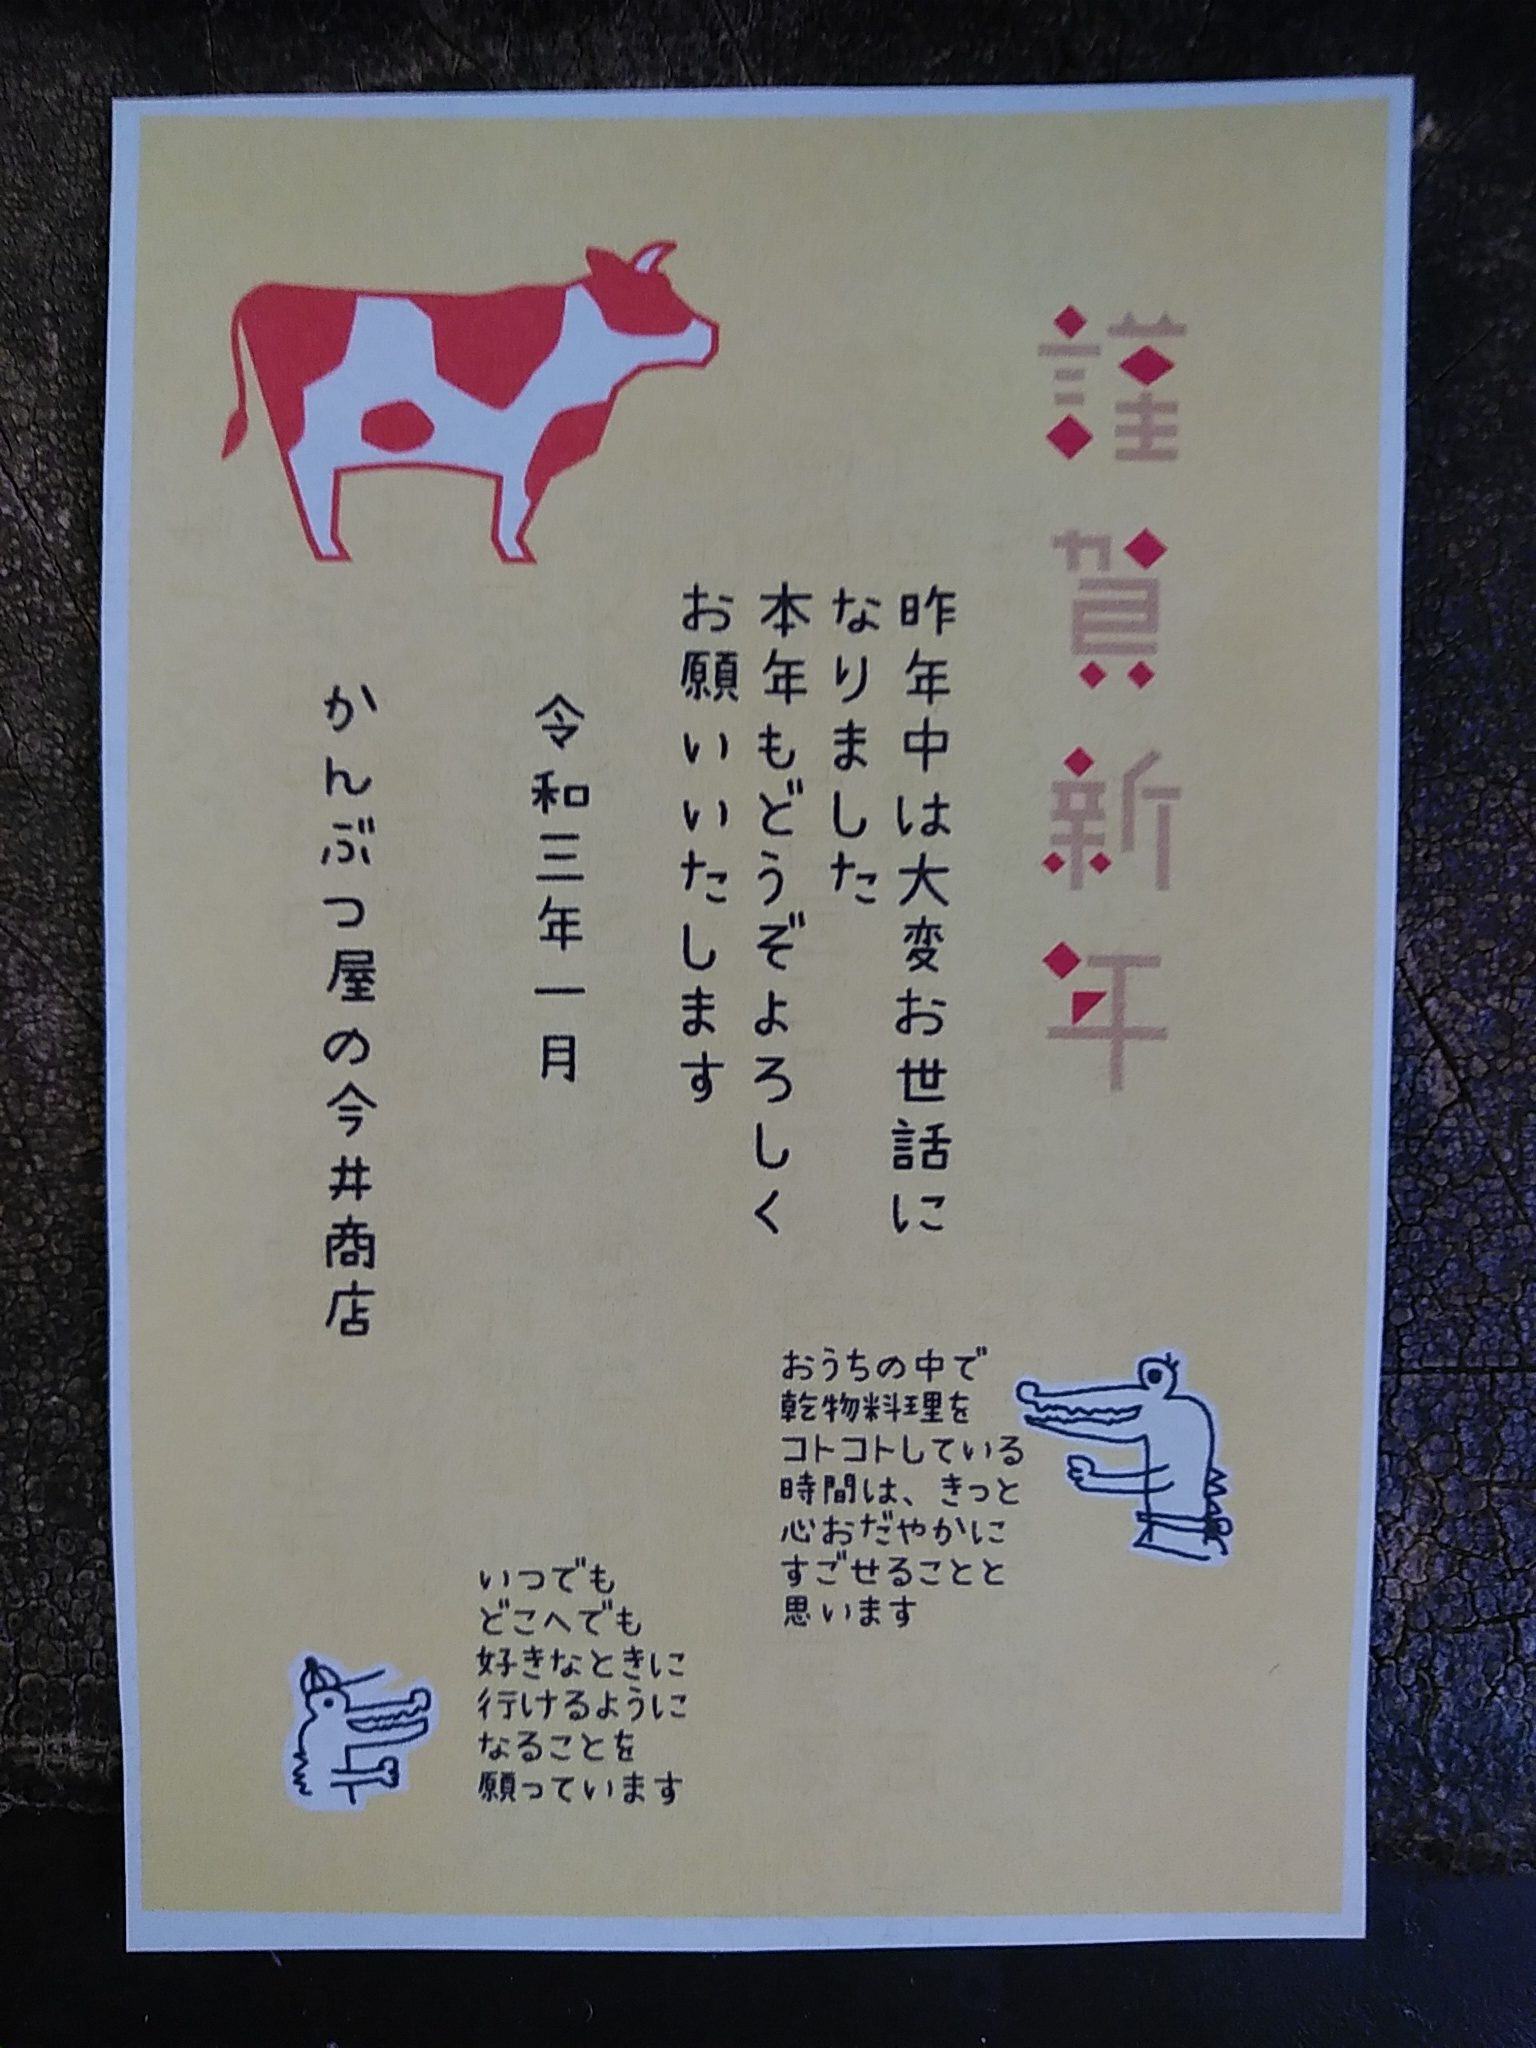 謹賀新年
昨年中は大変お世話に
なりました
本年もどうぞよろしく
お願いいたします
令和三年一月
かんぶつ屋の今井商店
おうちの中で
乾物料理を
コトコトしている
時間は、きっと
心おだやかに
すごせることと
思います
いつでも
どこへでも
好きなときに
行けるように
なることを
願っています